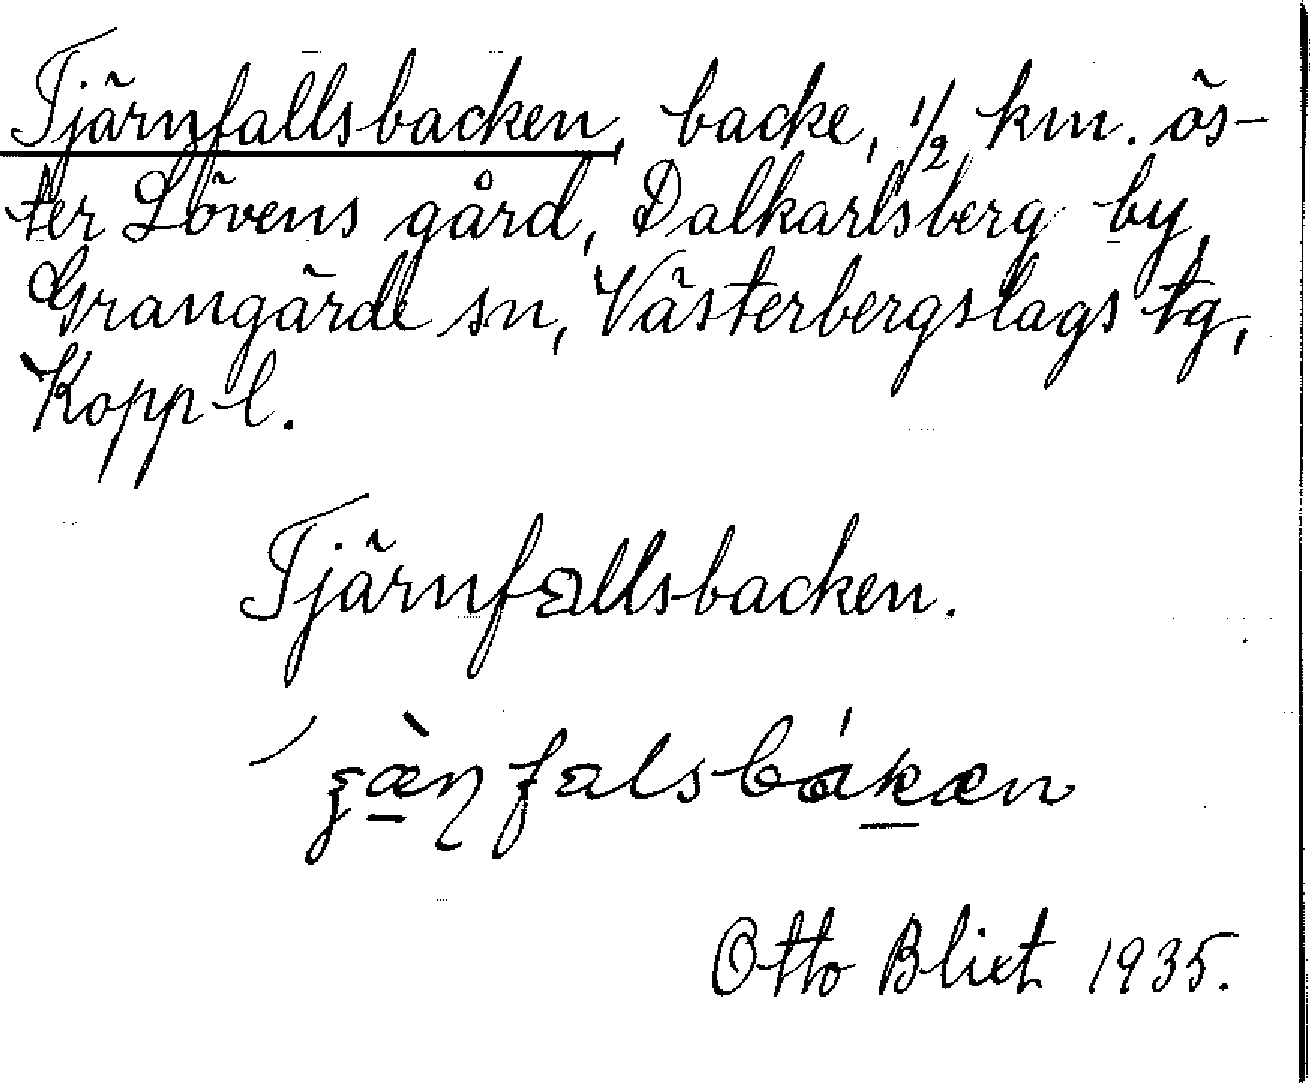 Tjärnfallsbacken, backe, 1/2 km. ös-
ter Lövens gård, Dalkarlsberg by,
Grangärde sn, Västerbergslags tg,
Kopp l.
Tjärnfallsbacken.
Otto Blixt 1935.